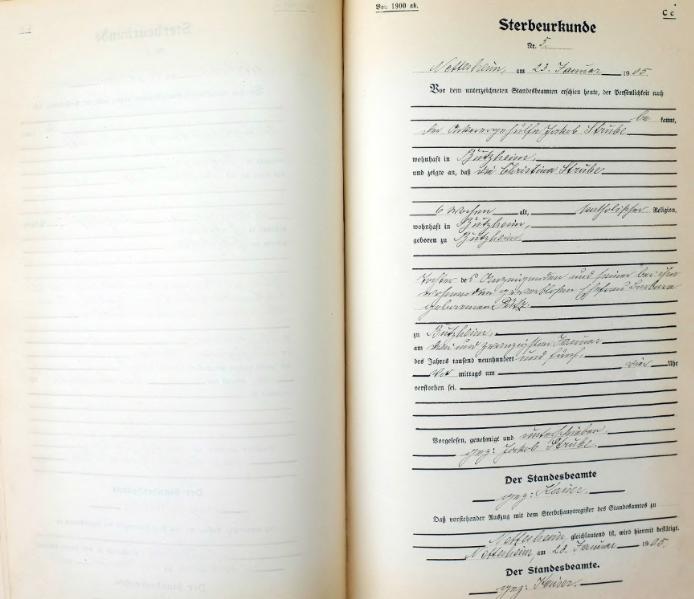 Vor. 1900 ab.
C c
Sterbeurkunde
Nr. 5
Nettersheim, am 23. Januar 1905.
Vor dem unterzeichneten Standesbeamten erschien heute, der Persönlichkeit nach
be kannt,
der Ackerergehülfe Jakob Strube
wohnhaft in Butzheim,
und zeigte an, daß die Christina Strube,
6 Wochen alt, katholischer Religion,
wohnhaft in Butzheim,
geboren zu Butzheim
Tochter des Anzeigenden und seiner bei ihm
wohnenden gewerblosen Ehefrau Barbara
geborenen
zu Butzheim,
am drei und zwanzigsten Januar
des Jahres tausend neunhundert und fünf,
mittags um vier Uhr
verstorben sei.
Vorgelesen, genehmigt und unterschrieben
gez: Jakob Strube.
Der Standesbeamte
gez:
Daß vorstehender Auszug mit dem Sterbehauptregister des Standesamts zu
gleichlautend ist, wird hiermit bestätigt.
am 23. Januar 1905.
Der Standesbeamte.
gez: